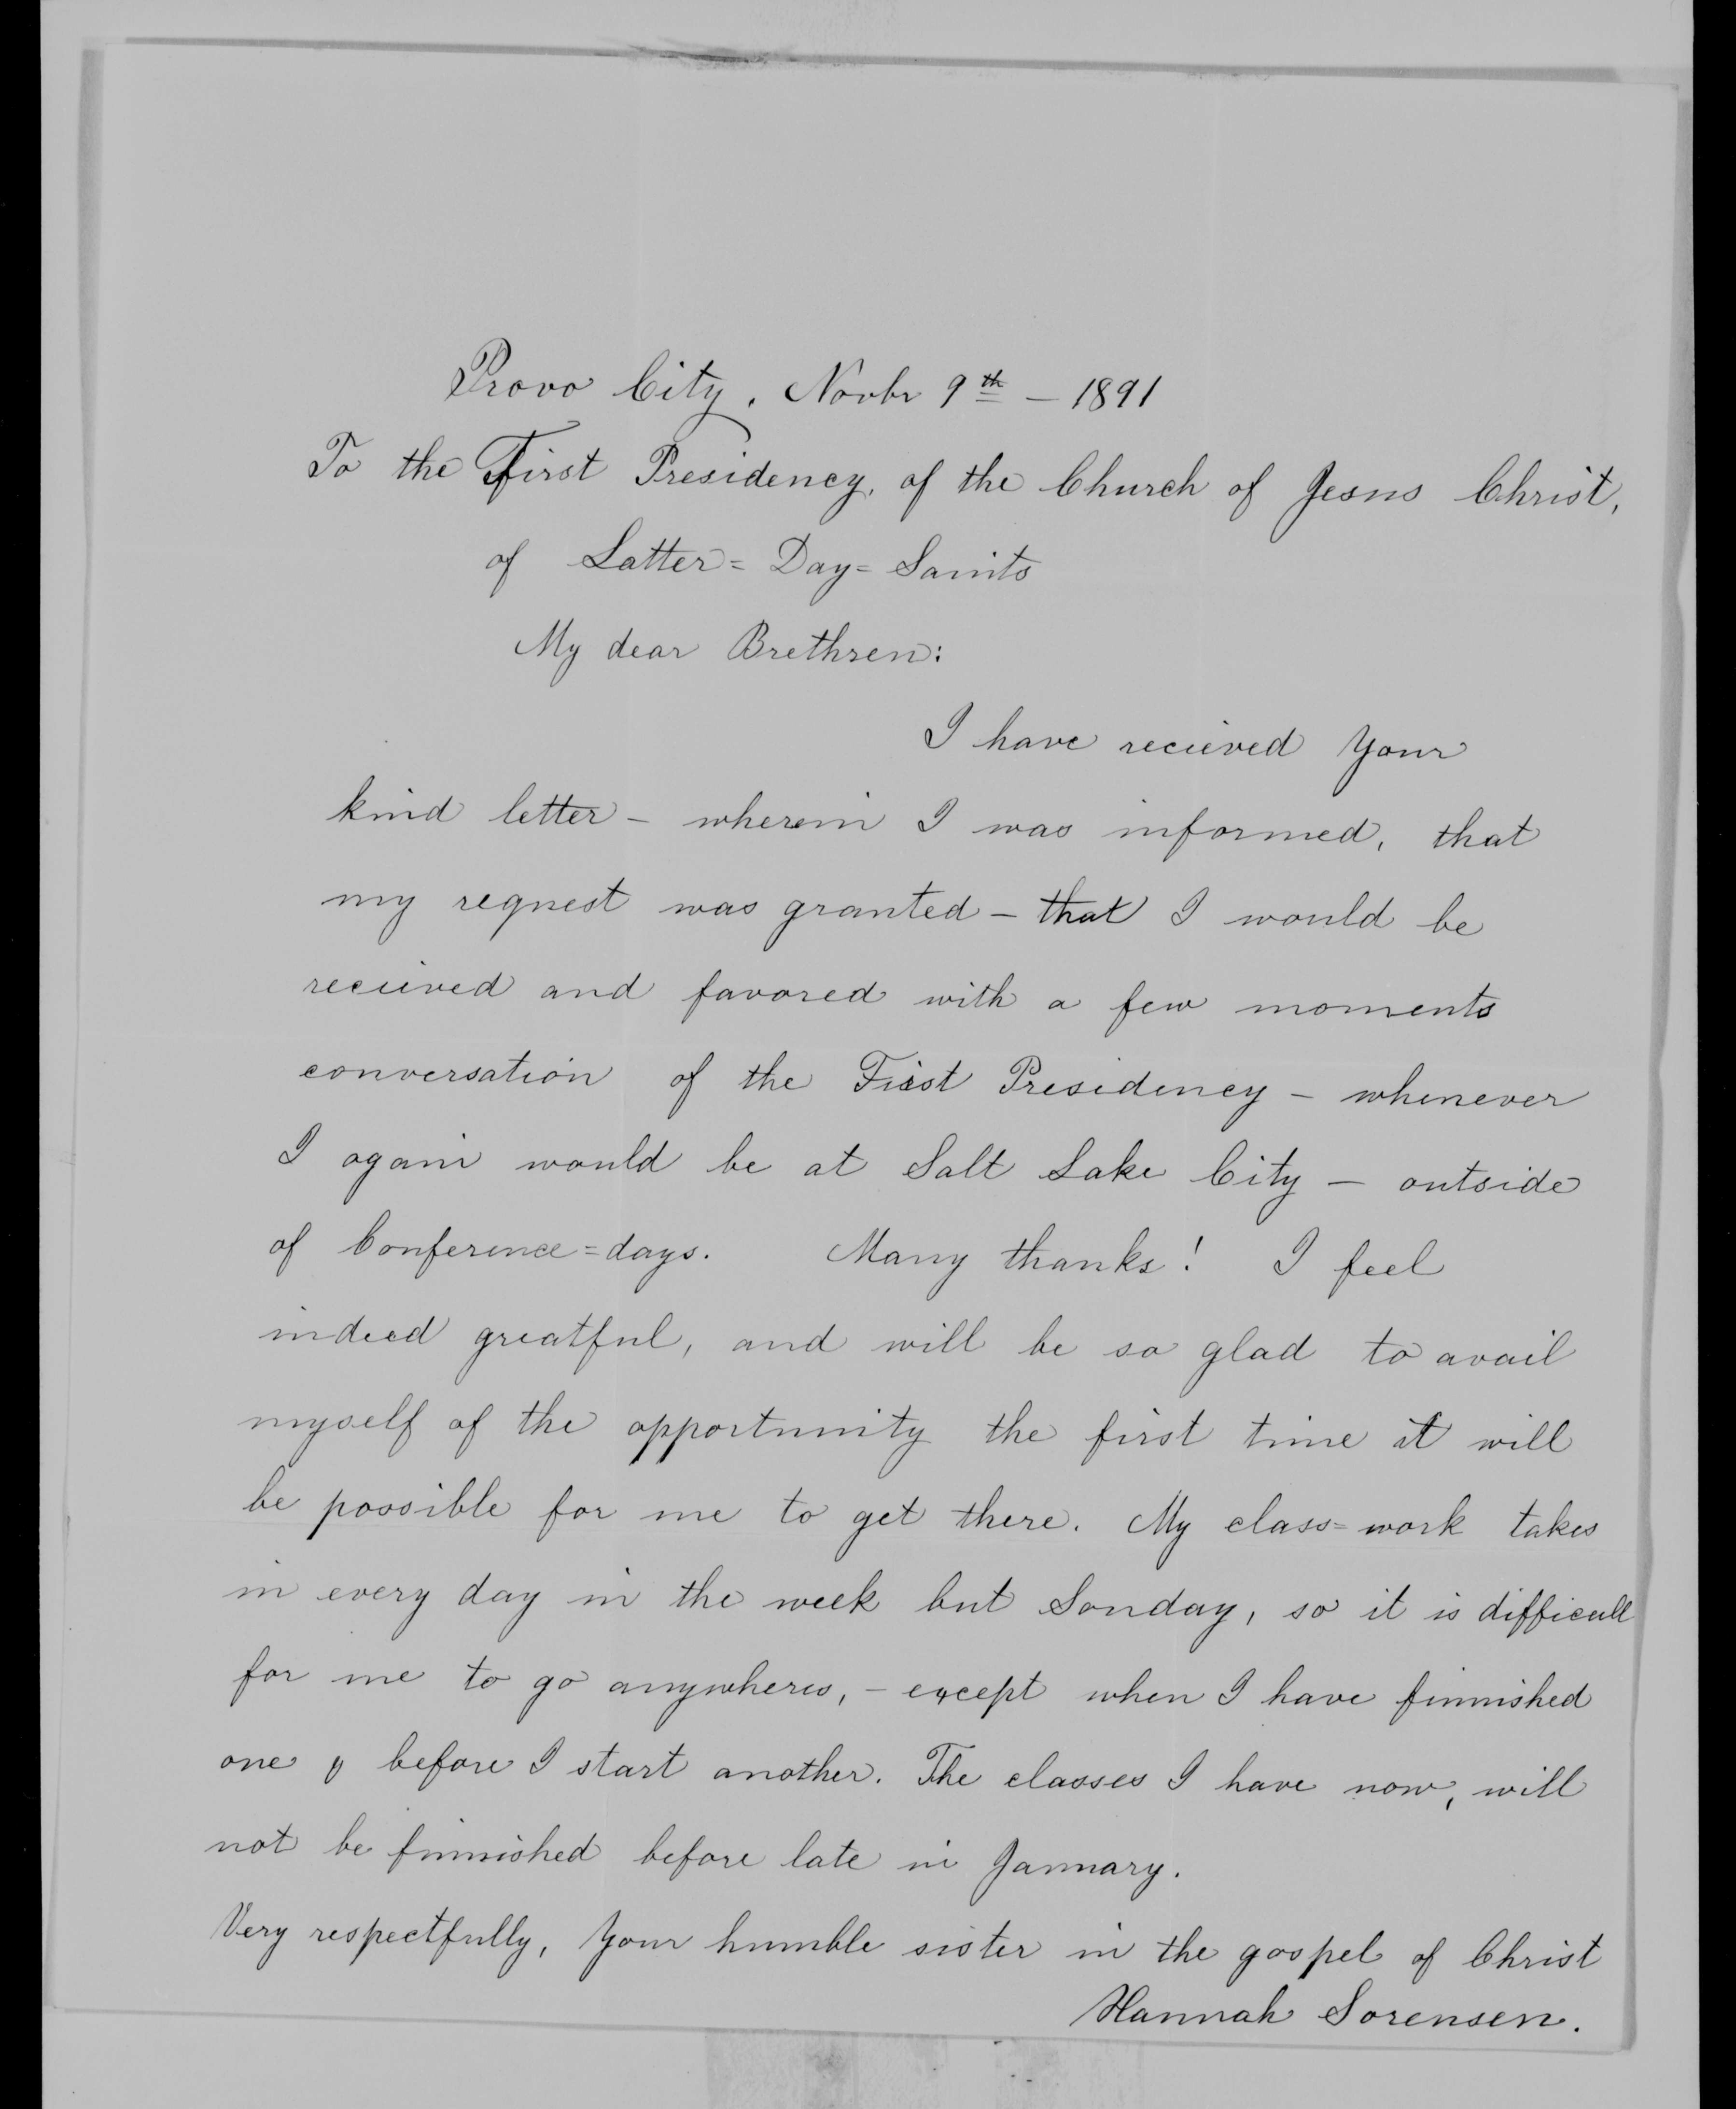 Provo City, Novbr 9th – 1891
To the First Presidency, of the Church of Jesus Christ,
of Latter=Day=Saints
My dear Brethren:
I have recieved Your
kind letter – wherein I was informed, that
my request was granted – that I would be
recieved and favored with a few moments
conversation of the First Presidency – whenever
I again would be at Salt Lake City – outside
of Conference=days. Many thanks! I feel
indeed greatful, and will be so glad to avail
myself of the opportunity the first time it will
be possible for me to get there. My class=work takes
in every day in the week but Sonday, so it is difficult
for me to go anywheres, – except when I have finnished
one & before I start another. The classes I have now, will
not be finnished before late in January.
Very respectfully, Your humble sister in the gospel of Christ
Hannah Sorensen.